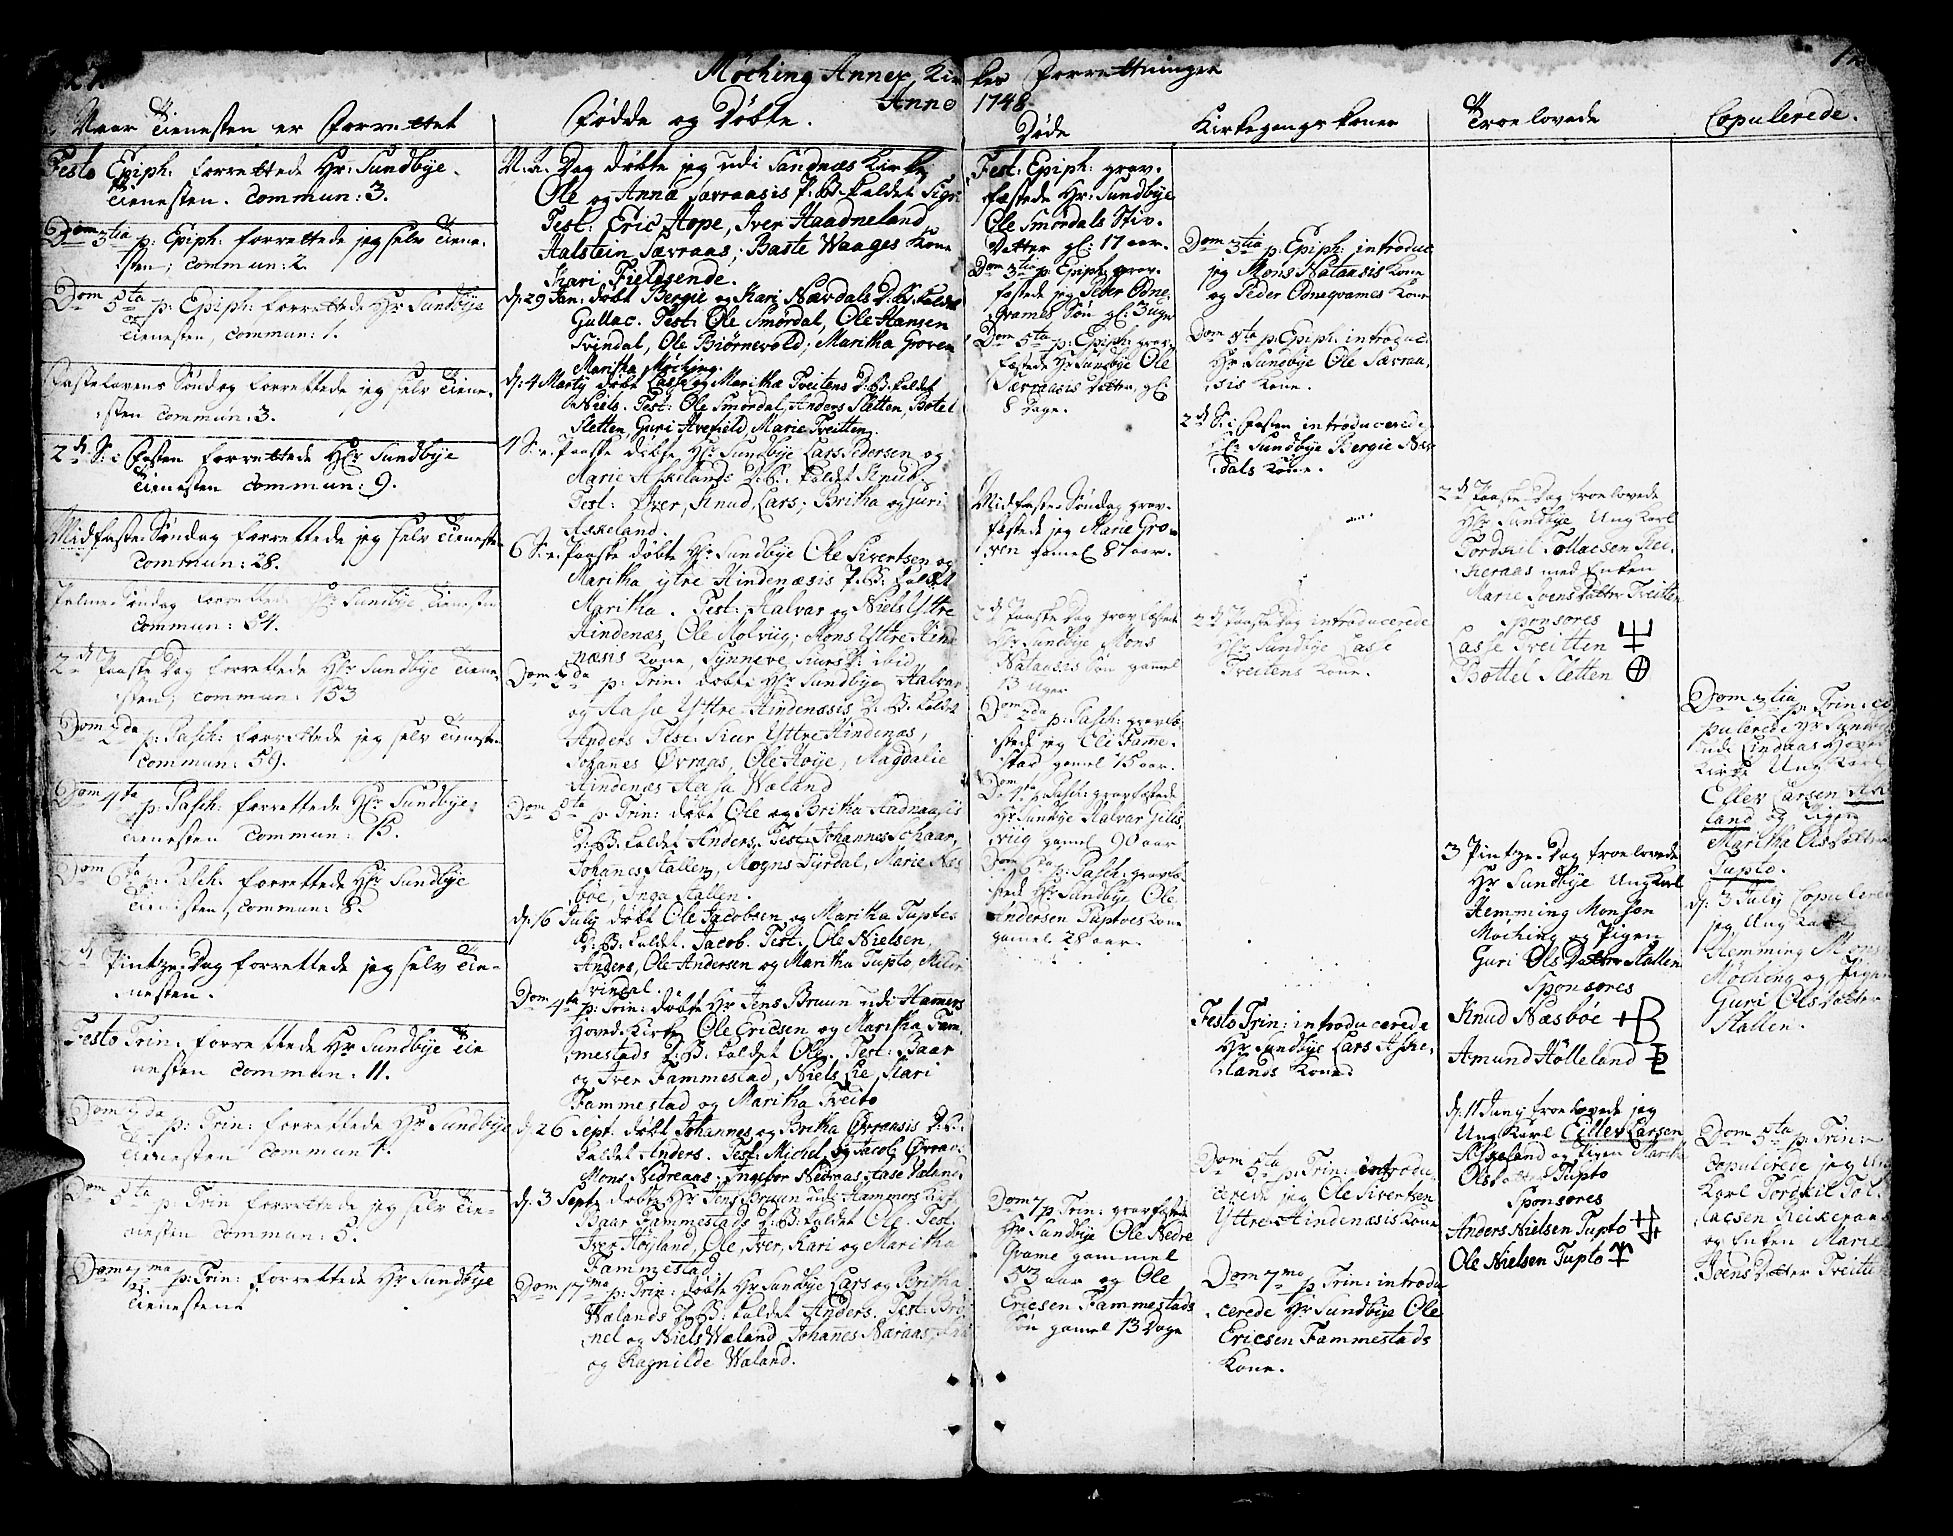 Møching Annex Kirkes Forrettninger
Anno 1748
Naar Tienesten er forrettet
Festo Epiph: forrettede Hr: Sundbye
Tienesten. Commun: 3.
Dom 3tia p: Epiph: forrettede jeg selv Tiene-
sten; Commun: 2.
Dom 5ta p: Epiph: forrettede Hr Sundbye
Tienesten, Commun: 1.
Fastelavens Søndag forrettede jeg selv Tiene-
sten Commun: 3.
2d S: i Fasten forrettede Hr Sundbye
Tienesten Commun: 9.
Midfaste Søndag forrettede jeg selv Tienesten
Commun: 28.
Palme Søndag forrettede Hr Sundbye Tienesten
Commun: 54.
2d Paaske Dag forrettede Hr Sundbye Tiene-
sten; Commun: 153
Dom 2da p: Pasch: forrettede jeg selv Tienesten
Commun: 59.
Dom 4ta p: Pasch: forrettede Hr Sundbye
Tienesten Commun: 15.
Dom 6ta p: Pasch: forrettede Hr Sundbye
Tienesten, Commun: 8.
2d Pintze-Dag forrettede jeg selv Tie-
nesten.
Festo Trin: forrettede Hr Sundbye Tie
nesten Commun: 11.
Dom 2da p: Trin: forrettede Hr Sundbye
Tienesten Commun 4.
Dom 5ta p: Trin forrettede jeg selv Tie-
nesten Commun: 5.
Dom 7ma p: Trin: forrettede Hr Sundbye
Tienesten
Fødde og Døbte.
N. A. Dag døbte jeg udi Sandnæs Kirke
Ole og Anna Sævraasis P: B: kaldet
Test: Eric Hope, Iver Haadneland
Halstein Sævraas; Baste Waages Kone
Kari Fieldsende.
d: 29 Jan: døbt Bergie og Kari Nævdals D: B: kaldet
Gullac. Test: Ole Smørdal, Ole Hansen
Svindal, Ole Biørnevold; Maritha Groven
Maritha Møching.
d: 4 Marty døbt Lasse og Maritha Tveitens D: B: kaldet
Niels. Test: Ole Smørdal, Anders Sletten, Botel
Sletten, Guri Avefield Marie Tveitten.
4 S: e: Paaske døbte Hr Sundbye Lars Pedersen og
Marie Askelands D: B: kaldet Knud.
Test: Iver, Knud, Lars; Britha og Guri
Askeland.
6 S: e: Paaske døbte Hr Sundbye Ole Sivertsen og
Maritha ytre Hindenæsis P: B: kaldet
Maritha. Test: Halvar og Niels Ytre
Hindenæs, Ole Molviig; Mons Yttre Hinde
næsis Kone, Synneve ibid
Dom 2da p: Trin: døbte Hr Sundbye Halvar
og Aasæ Yttre Hindenæsis D: B: kaldet
Anders Test: Siur Yttre Hindenæs,
Johannes Øvraas, Ole Høye, Magdalie
Hindenæs Aasa Wæland
Dom 5ta p: Trin: døbt Ole og Britha Hadnaasis
D: B: kaldet Anders. Test: Johannes Schaar,
Johannes Stallen, Mogns Dyrdal, Marie Næs
bøe, Inga Stallen.
d: 16 July døbt Ole Jacobsen og Maritha Tuptes
D: B: kaldet Jacob. Test: Ole Nielsen,
Anders, Ole Andersen og Maritha Tupto,
Svindal.
Dom 4ta p: Trin: døbte Hr Jens Bruun udi Hamers
Hoved-Kirke Ole Ericsen og Maritha Fam-
mestads D: B: kaldet Ole. Test: Baar
og Iver Fammestad, Niels Lie, Kari
Fammestad og Maritha Tveito
d: 26 Sept: døbt Johannes og Britha Øvraasis D: B:
kaldet Anders. Test: Michel og Jacob Øvraas
Mons Nedreaas, Ingebor Nedraas Aase
d: 3 Sept: døbte Hr Jens Bruun udi Hammers Kirke
Baar Fammestads D: B: kaldet Ole. Test:
Iver Høyland, Ole, Iver, Kari og Maritha
Fammestad
Dom 17ma p: Trin: døbte Hr Sundbye Lars og Britha
Walands D: B: kaldet Anders. Test:
og Niels Wæland, Johannes Næraas
og Ragnilde Waland.
Døde
Fest: Epiph: grav-
fæstede Hr: Sundbye
Ole Smørdals Stiv-
Datter gl: 17 aar.
Dom 3tia p: Epiph: grav-
fæstede jeg Peder Odne
qvames Søn gl: 3 uger
Dom 5ta p: Epiph: grav-
fæstede Hr Sundbye Ole
Sævraasis Datter, gl:
8 Dage.
Midfaste Søndag grav-
fæstede jeg Marie Gro-
ven gamel 87 aar.
2d Paaske Dag gravfæstede
Hr Sundbye Mons
Nataasis Søn gamel
13 uger
Dom 2da p: Pasch: gravfæ-
stede jeg Eli Famme-
stad gamel 15 aar.
Dom 4ta p: Pasch: gravfæstede
Hr Sundbye Halvar Gills-
viig gamel 90 aar
Dom 6ta p: Pasch: gravfæ-
stede Hr Sundbye Ole
Andersen Tuptoes Kone
gamel 28 aar.
Dom 7 p: Trin: gravfæstede
Hr Sundbye Ole Nedre
Qvame gammel
53 aar og Ole
Ericsen Fammestads
Søn gamel 13 Dage
Kirkegangs Koner
Dom 3tia p: Epiph: introduc
jeg Mons Natansis Kone
og Peder Odneqvames Kone
Dom 5ta p: Epiph: introduc:
Hr Sundbye Ole Sævraa-
sis Kone.
2d S: i Fasten introducerede
Hr Sundbye Bergie Næv
dals Kone.
2d Paaske Dag introducerede
Hr Sundbye Lasse
Tveitens Kone.
Festo Trin: introducerede
Hr Sundbye Lars Aske-
lands Kone
Dom 5ta p: Trin: introdu
cerede jeg Ole Sivertsen
Yttre Hindenæsis Kone
Dom 7ma p: Trin: introdu
cerede Hr Sundbye Ole
Ericsen Fammestads
Kone.
Troelovede
2d Paaske-Dag troelovede
Hr Sundbye Ung Karl
Tordskil Tollacsen Rei-
keraas med Enken
Marie Joens Datter Tveitten
Sponsores
Lasse Tveitten
Bottel Sletten
3 Pintze-Dag troelovede
Hr Sundbye Ung Karl
Hemming Monsøn
Moching og Pigen
Guri Ols Datter Stallen
Sponsores
Knud Næsbøe
Amund Hølleland
d: 11 Juny troelovede jeg
Ung Karl Eillev Larsen
Askeland og Pigen Marita
Olsdatter Tupto
Sponsores
Anders Nielsen Tupto
Ole Nielsen Tupto
Copulerede.
Dom 3tia p: Trin: co
pulerede Hr Sundbye
udi Lindaas Hoved
Kirke Ung Karl
Ellev Larsen Aske
land og Pigen
Maritha Ols Datter
Tupto.
d: 3 July Copulerede
jeg Ung Karl
Hemming Mons
Møching og Pigen
Guri Olsdatter
Stallen.
Dom 5ta p: Trin:
Copulerede jeg Ung
Karl Tordskil Tol-
lacsen Reikeraas
og Enken Marie
Joens Datter Tveiten